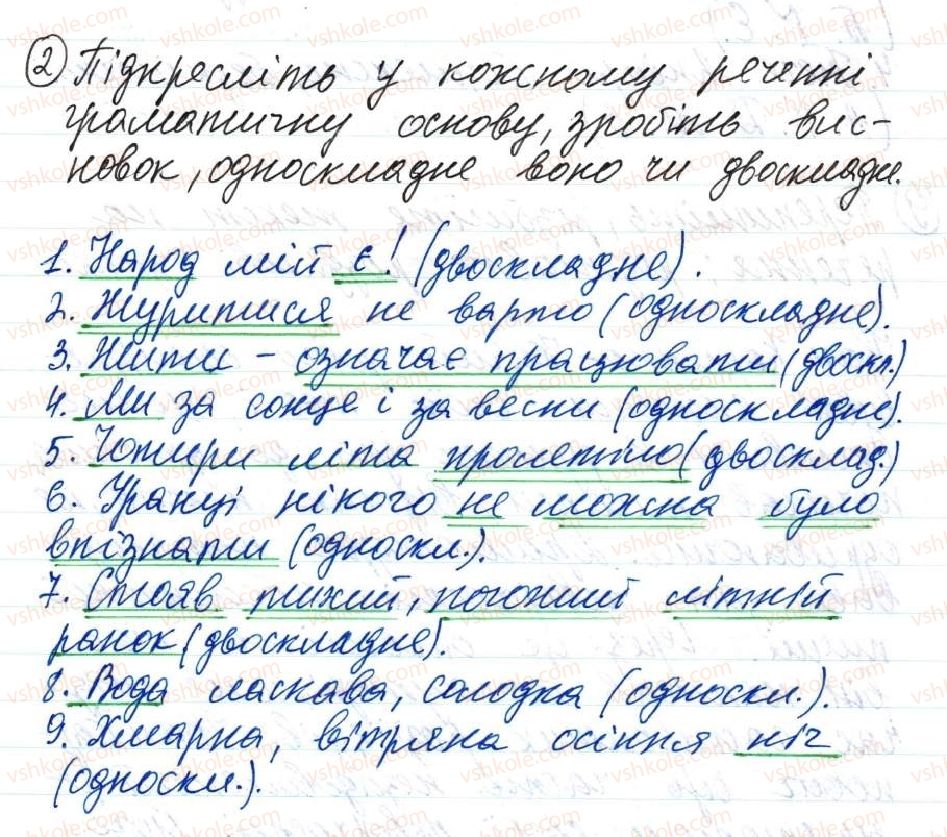 ② Підкресліть у кожному реченні
граматичну основу, зробіть вис-
новок, односкладне воно чи двоскладне.
1. Народ мій є! (двоскладне).
2. Журитися не варто (односкладне).
3. Жити - означає працювати (двоскл.)
4. Ми за сонце і за весни (односкладне).
5. Чотири літа пролетіло (двосклад.)
6. Уранці нікого не можна було
впізнати (односкл.).
7. Стояв тихий, погожий літній
ранок (двоскладне).
8. Вода ласкава, солодка (односкл.).
9. Хмарна, вітряна осіння ніч
(односкл.).